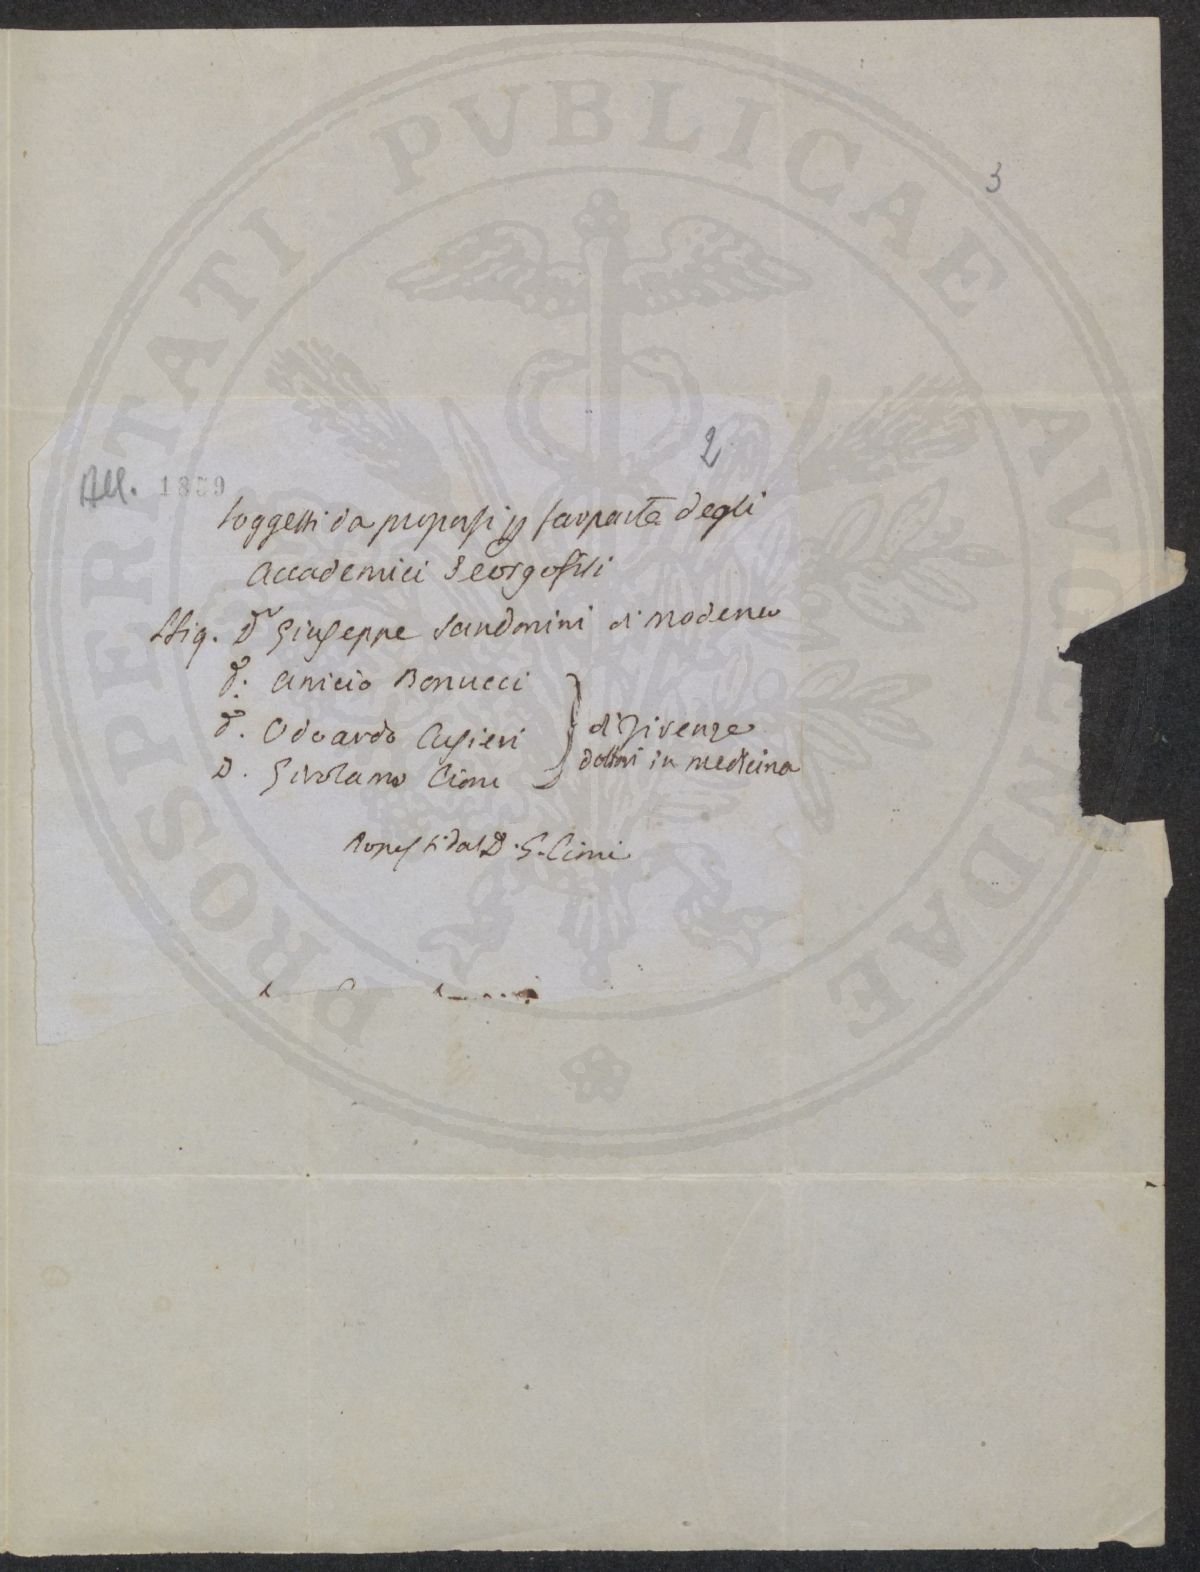 PROSPERITATI PVBLICAE AVGENDAE
3
2
All. 1859
Soggetti da proporsi p far parte degli
Accademici Georgofili
SSig. Dr Giuseppe Sandonini di Modena
d. Anicio Bonucci
d. Odoardo Casieri
D. Girolamo Cioni
di Firenze
dottori in medicina
Proposti dal D. G. Cioni